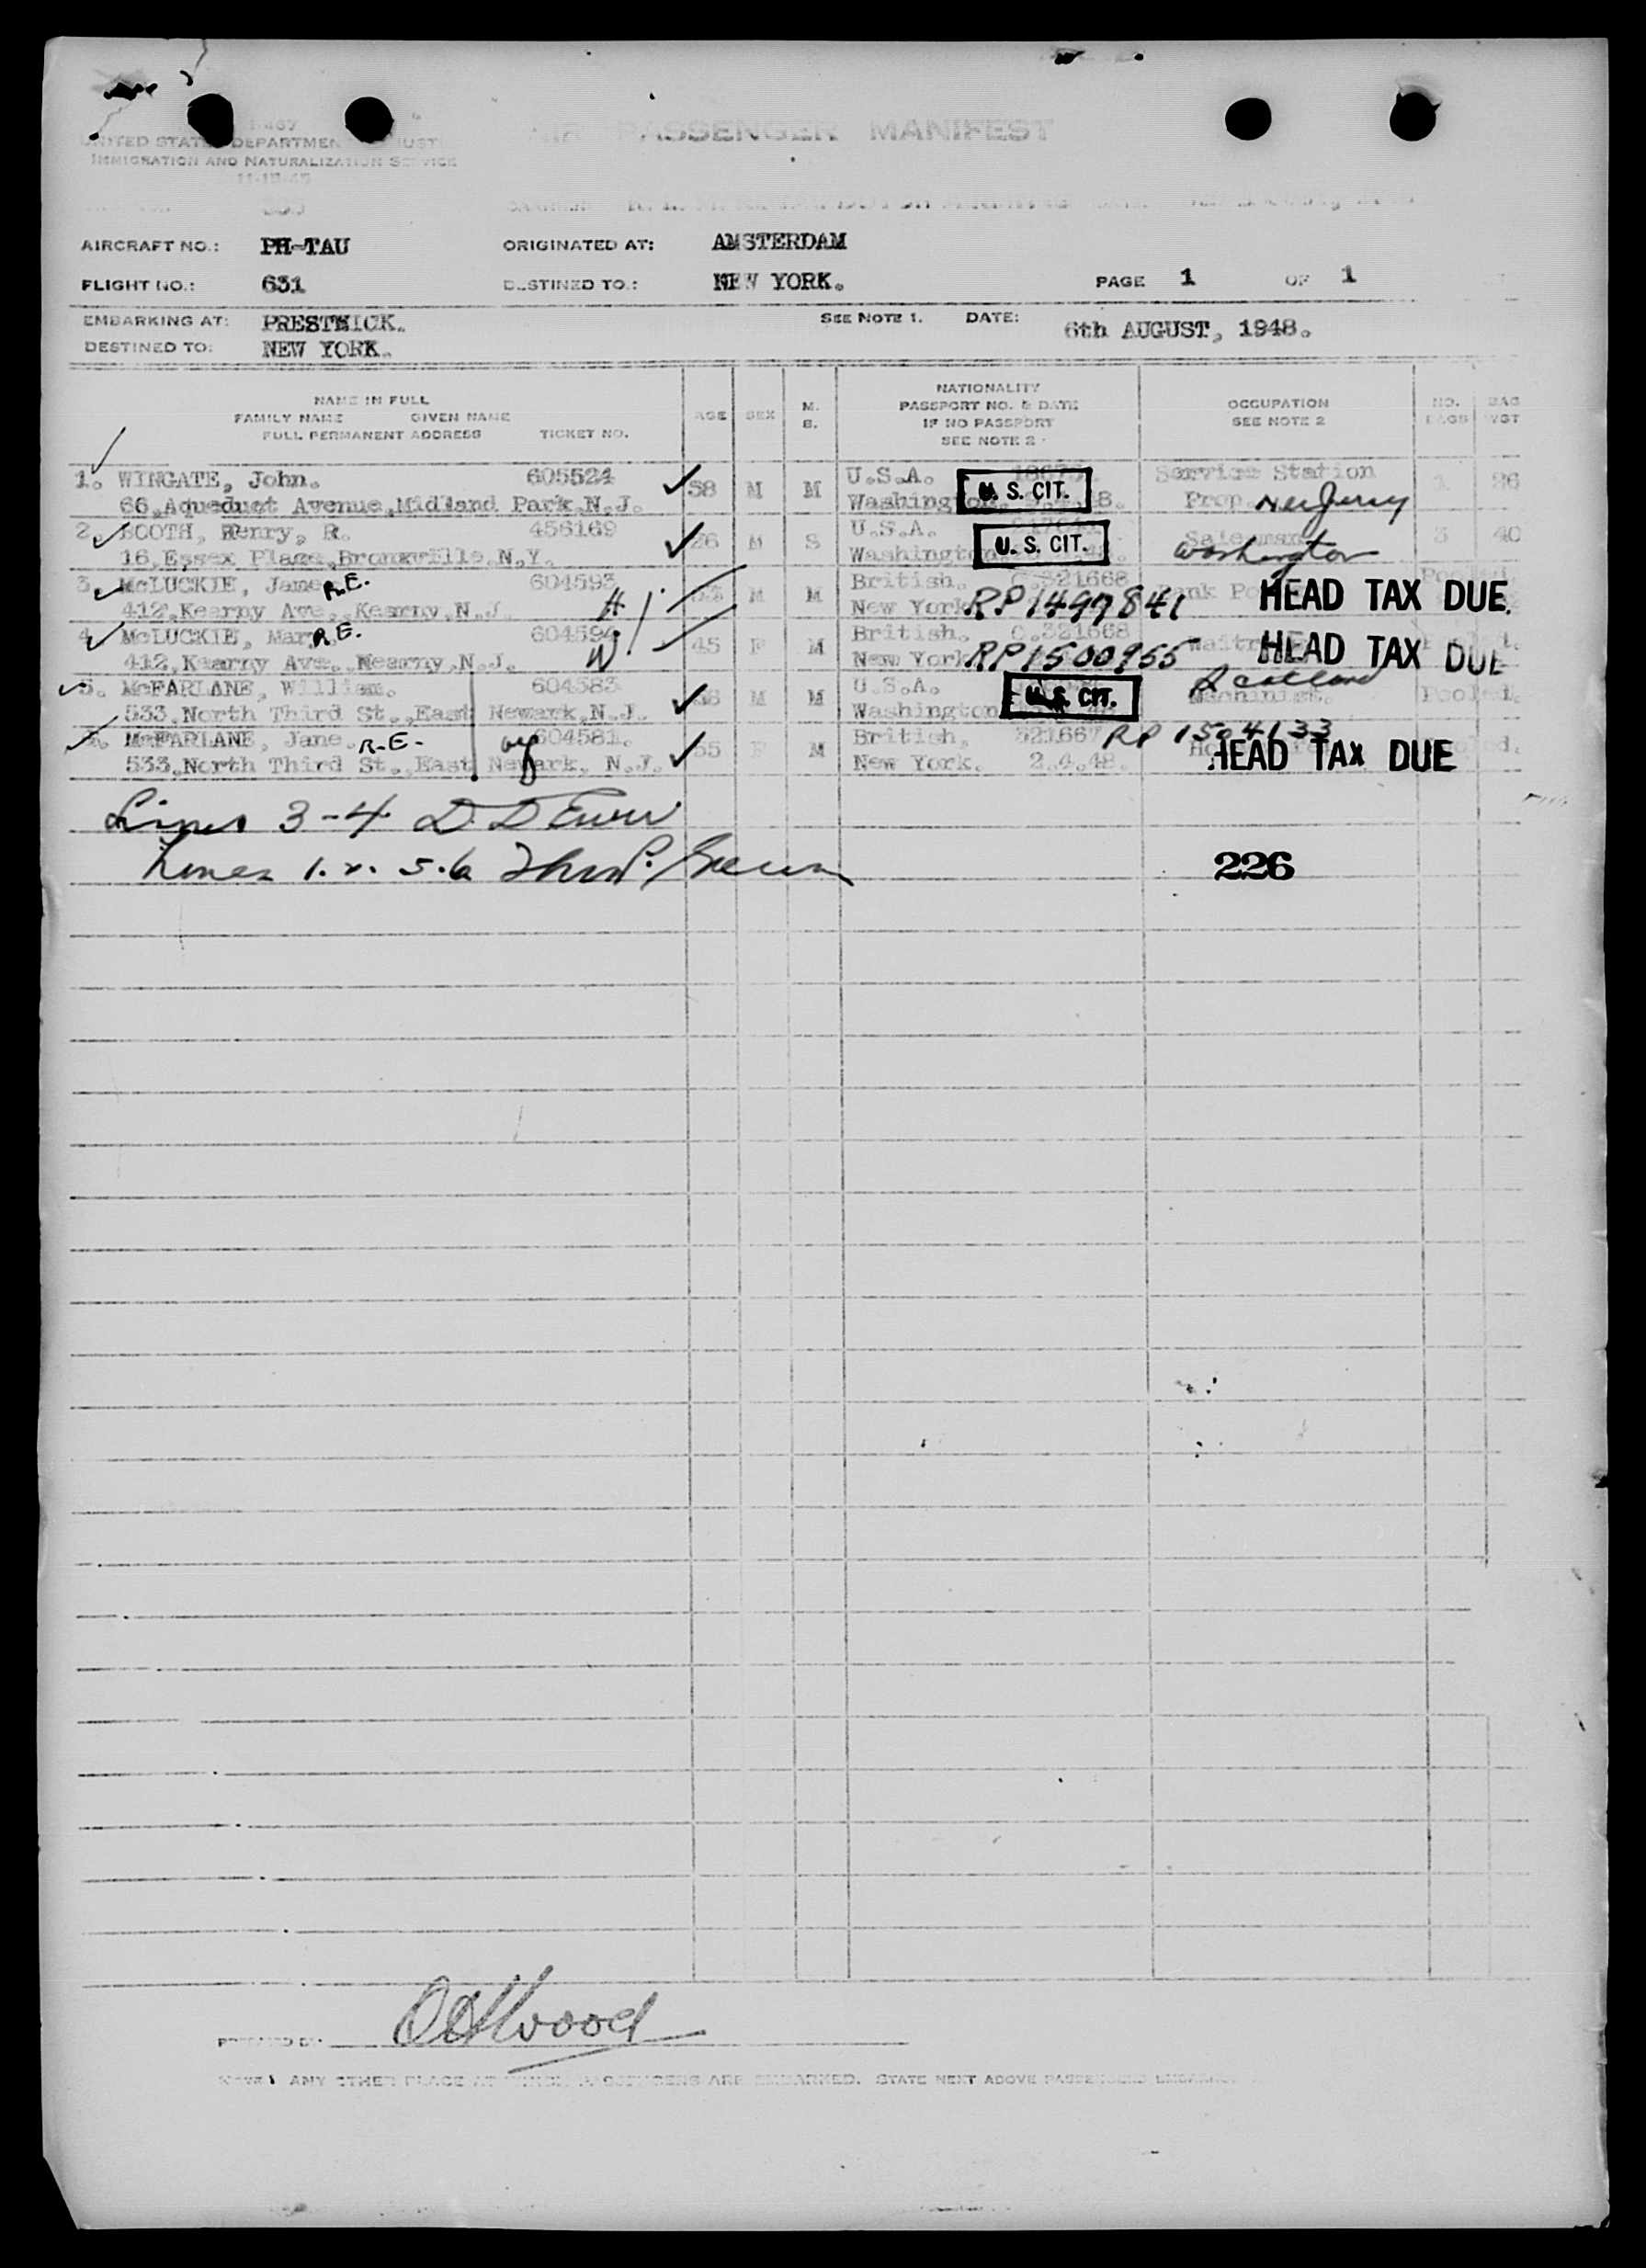 I-467
UNITED STATES DEPARTMENT JUSTI
IMMIGRATION AND NATURALIZATION SERVICE
11-15-45
AIR PASSENGER MANIFEST
AIRCRAFT NO.: PH-TAU ORIGINATED AT: AMSTERDAM
FLIGHT NO.: 631 DESTINED TO.: NEW YORK. PAGE 1 OF 1
EMBARKING AT: PRESTWICK. SEE NOTE 1. DATE: 6th AUGUST, 1948.
DESTINED TO: NEW YORK.
NAME IN FULL
FAMILY NAME GIVEN NAME
FULL PERMANENT ADDRESS TICKET NO.
AGE SEX M. S.
NATIONALITY
PASSPORT NO. & DATE
IF NO PASSPORT
SEE NOTE 2
OCCUPATION
SEE NOTE 2
NO. BAGS BAG WGT
1. WINGATE, John. 605524 58 M M U.S.A. U. S. CIT. Service Station 1 26
66,Aqueduct Avenue,Midland Park,N.J. Washington Prop. New Jersey
2. BOOTH, Henry, R. 456169 26 M S U.S.A. U. S. CIT. Salesman 3 40
16,Essex Place,Bronxville,N.Y. Washington Washington
3. McLUCKIE, James R.E. 604593 M M British. C.321668 HEAD TAX DUE.
412,Kearny Ave.,Kearny,N.J. H New York RP1497841
4. McLUCKIE, Mary R.E. 604594 45 F M British. C.321668 Waitr HEAD TAX DUE
412,Kearny Ave.,Kearny,N.J. W New York RP1500955
5. McFARLANE, William. 604583 M M U.S.A. U. S. CIT. Scotland Machinist. Pooled.
533,North Third St.,East Newark,N.J. Washington
6. McFARLANE, Jane. R.E. 604581. 55 F M British, 321667 RP 1504133 HEAD TAX DUE
533,North Third St.,East Newark, N.J. New York. 2.4.48.
Lines 3-4 D D
Lines 1.2. 5.6
226
PREPARED BY
NOTE 1 ANY OTHER PLACE AT WHICH PASSENGERS ARE EMBARKED. STATE NEXT ABOVE